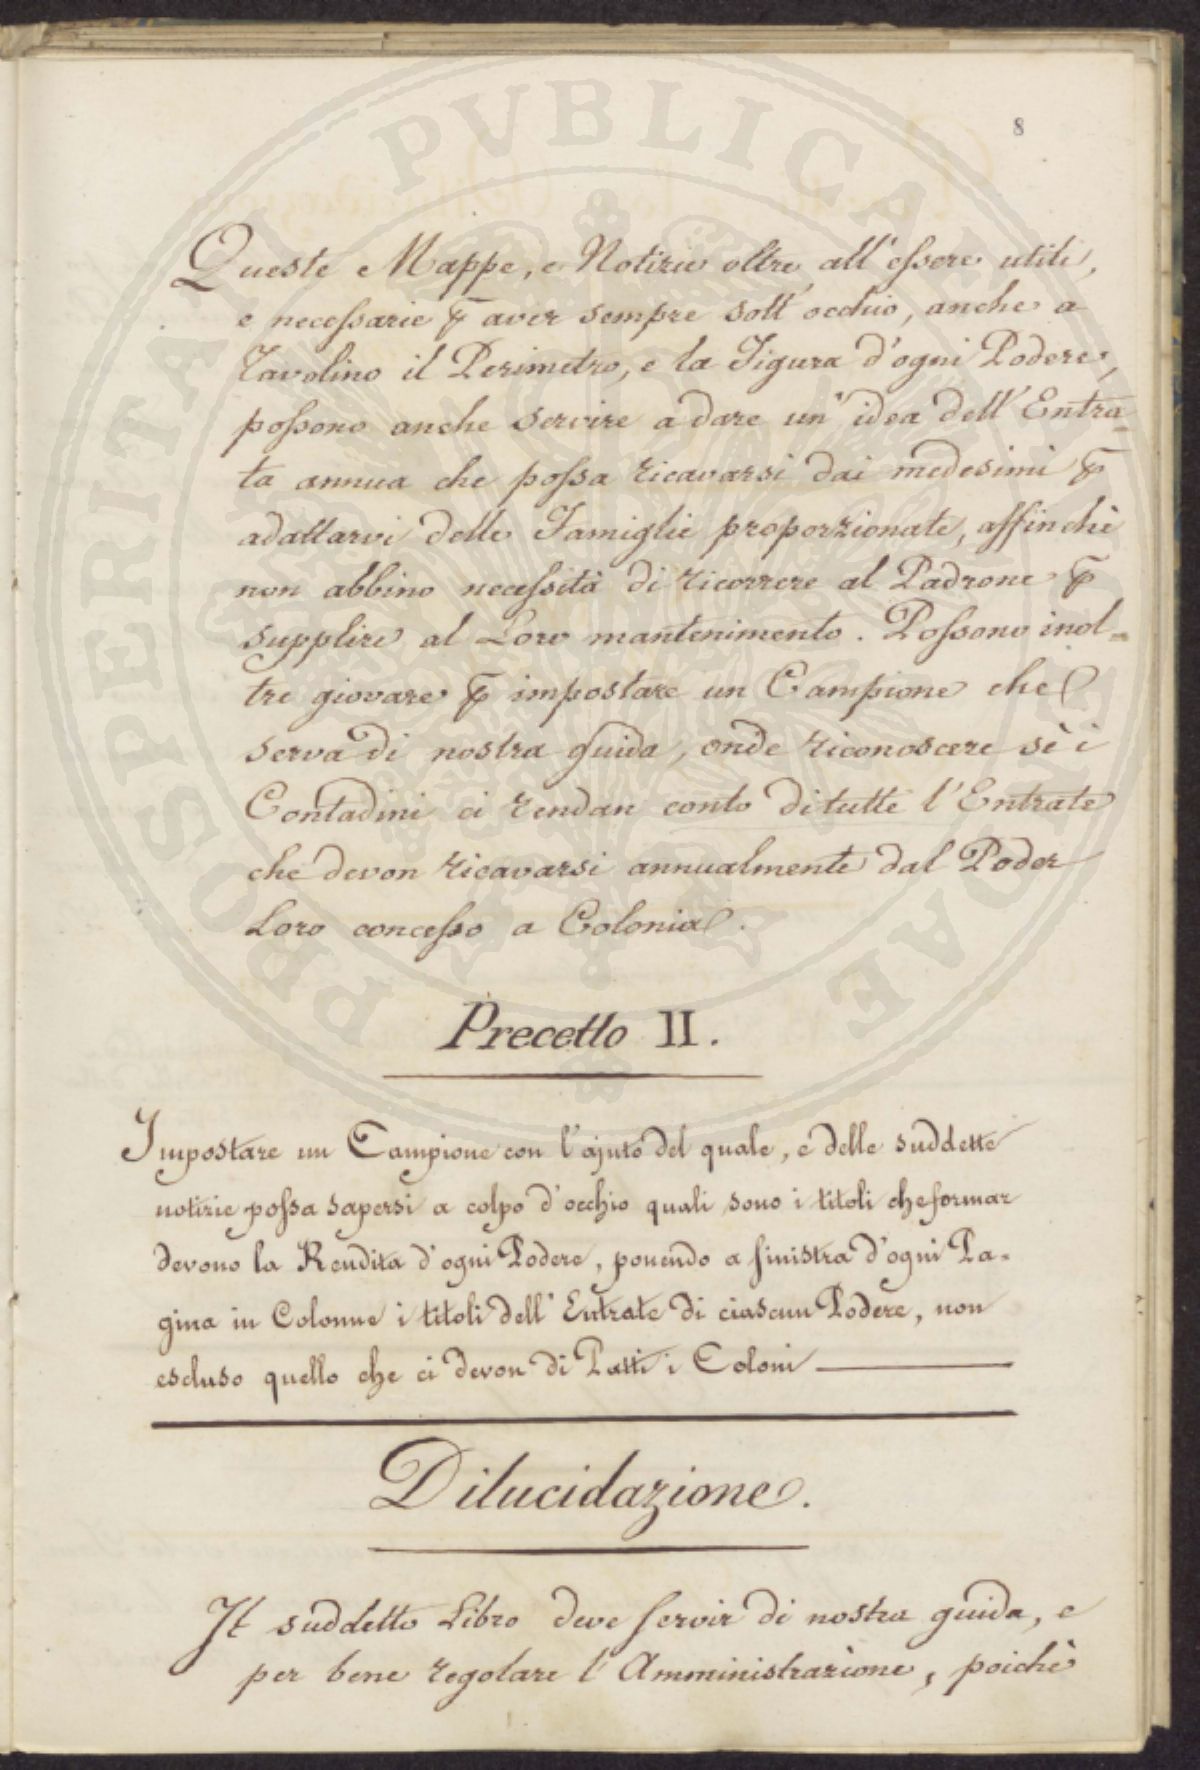 8
Queste Mappe, e Notizie oltre all'essere utili,
e necessarie ꝑ aver sempre sott'occhio, anche a
Tavolino il Perimetro, e la Figura d'ogni Podere,
possono anche servire a dare un'idea dell'Entra=
ta annua che possa ricavarsi dai medesimi ꝑ
adattarvi delle Famiglie proporzionate, affinchè
non abbino necessità di ricorrere al Padrone ꝑ
supplire al Loro mantenimento. Possono inol=
tre giovare ꝑ impostare un Campione che
serva di nostra guida, onde riconoscere sè i
Contadini ci rendan conto di tutte l'Entrate
che devon ricavarsi annualmente dal Poder
Loro concesso a Colonia.
Precetto II.
Impostare un Campione con l'ajuto del quale, e delle suddette
notizie possa sapersi a colpo d'occhio quali sono i titoli che formar
devono la Rendita d'ogni Podere, ponendo a sinistra d'ogni Pa=
gina in Colonne i titoli dell'Entrate di ciascun Podere, non
escluso quello che ci devon di Patti i Coloni
Dilucidazione.
Il suddetto Libro deve servir di nostra guida, e
per bene regolare l'Amministrazione, poichè
PROSPERITATI PVBLICAE AVGENDAE